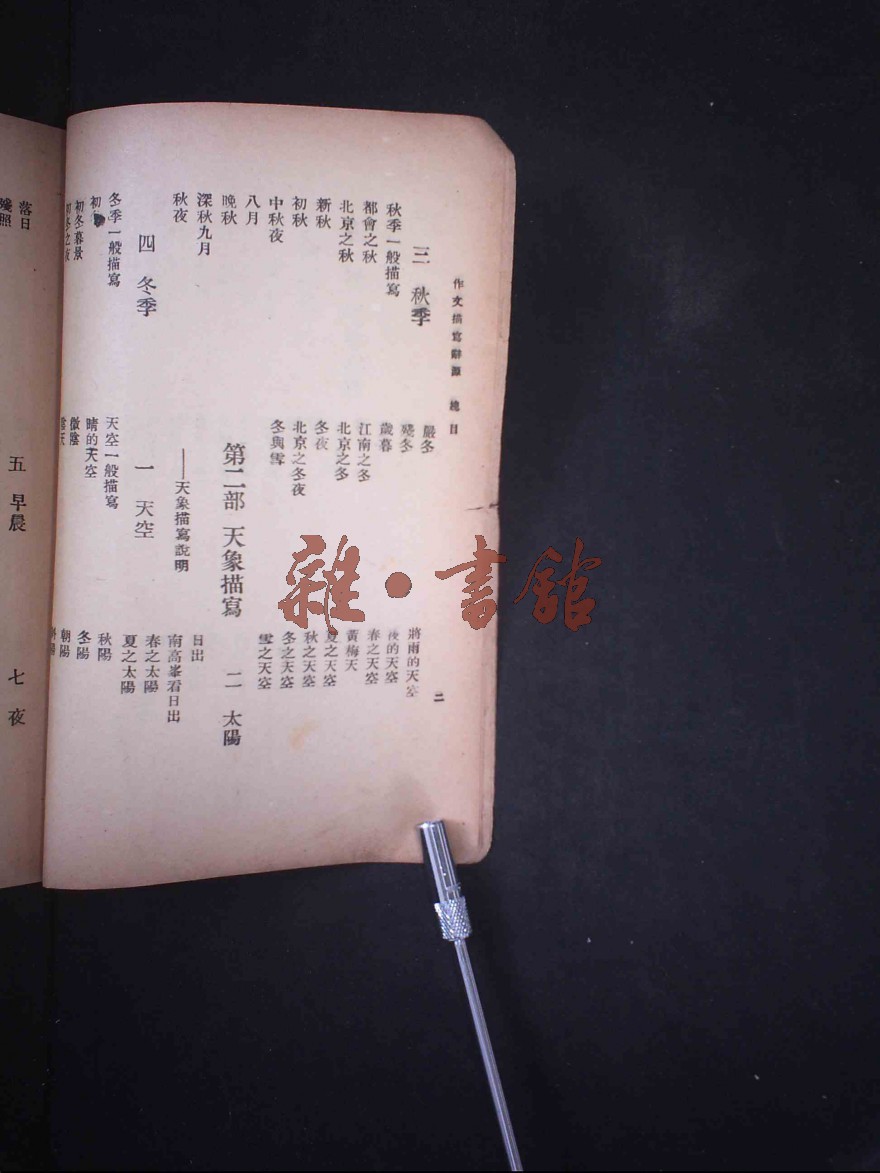 作文描寫辭源 總目
二
三 秋季
秋季一般描寫
都會之秋
北京之秋
新秋
初秋
中秋夜
八月
晚秋
深秋九月
秋夜
四 冬季
冬季一般描寫
初
初冬暮景
初冬之夜
嚴冬
殘冬
歲暮
江南之冬
北京之冬
冬夜
北京之冬夜
冬與雪
第二部 天象描寫
——天象描寫說明
一 天空
天空一般描寫
晴的天空
微陰
陰天
將雨的天空
夜的天空
春之天空
黃梅天
夏之天空
秋之天空
冬之天空
雪之天空
二 太陽
日出
南高峯看日出
春之太陽
夏之太陽
秋陽
冬陽
朝陽
落日
殘照
五 早晨
七 夜
雜·書館